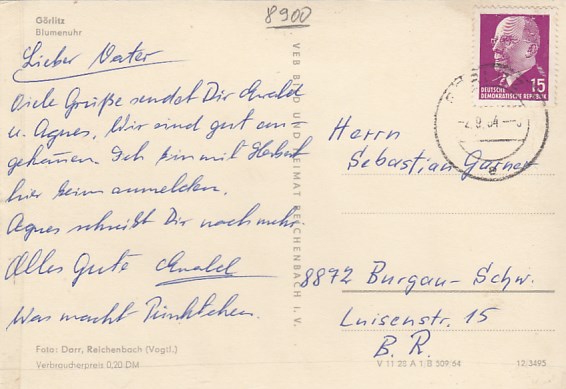 8900
Görlitz
Blumenuhr
Lieber Vater
Viele Grüße sendet Dir Ewald
u. Agnes, Wir sind gut an-
gekommen. Ich bin mit Herbert
hier beim anmelden.
Agnes schreibt Dir noch mehr.
Alles Gute Ewald
Was macht Pünktchen.
Foto: Darr, Reichenbach (Vogtl.)
Verbraucherpreis 0,20 DM
VEB BILD UND HEIMAT REICHENBACH I. V.
15
DEUTSCHE
DEMOKRATISCHE REPUBLIK
Herrn
Sebastian Gurner
8872 Burgau-Schw.
Luisenstr. 15
B. R.
V 11 28 A 1/B 509/64
12/3495